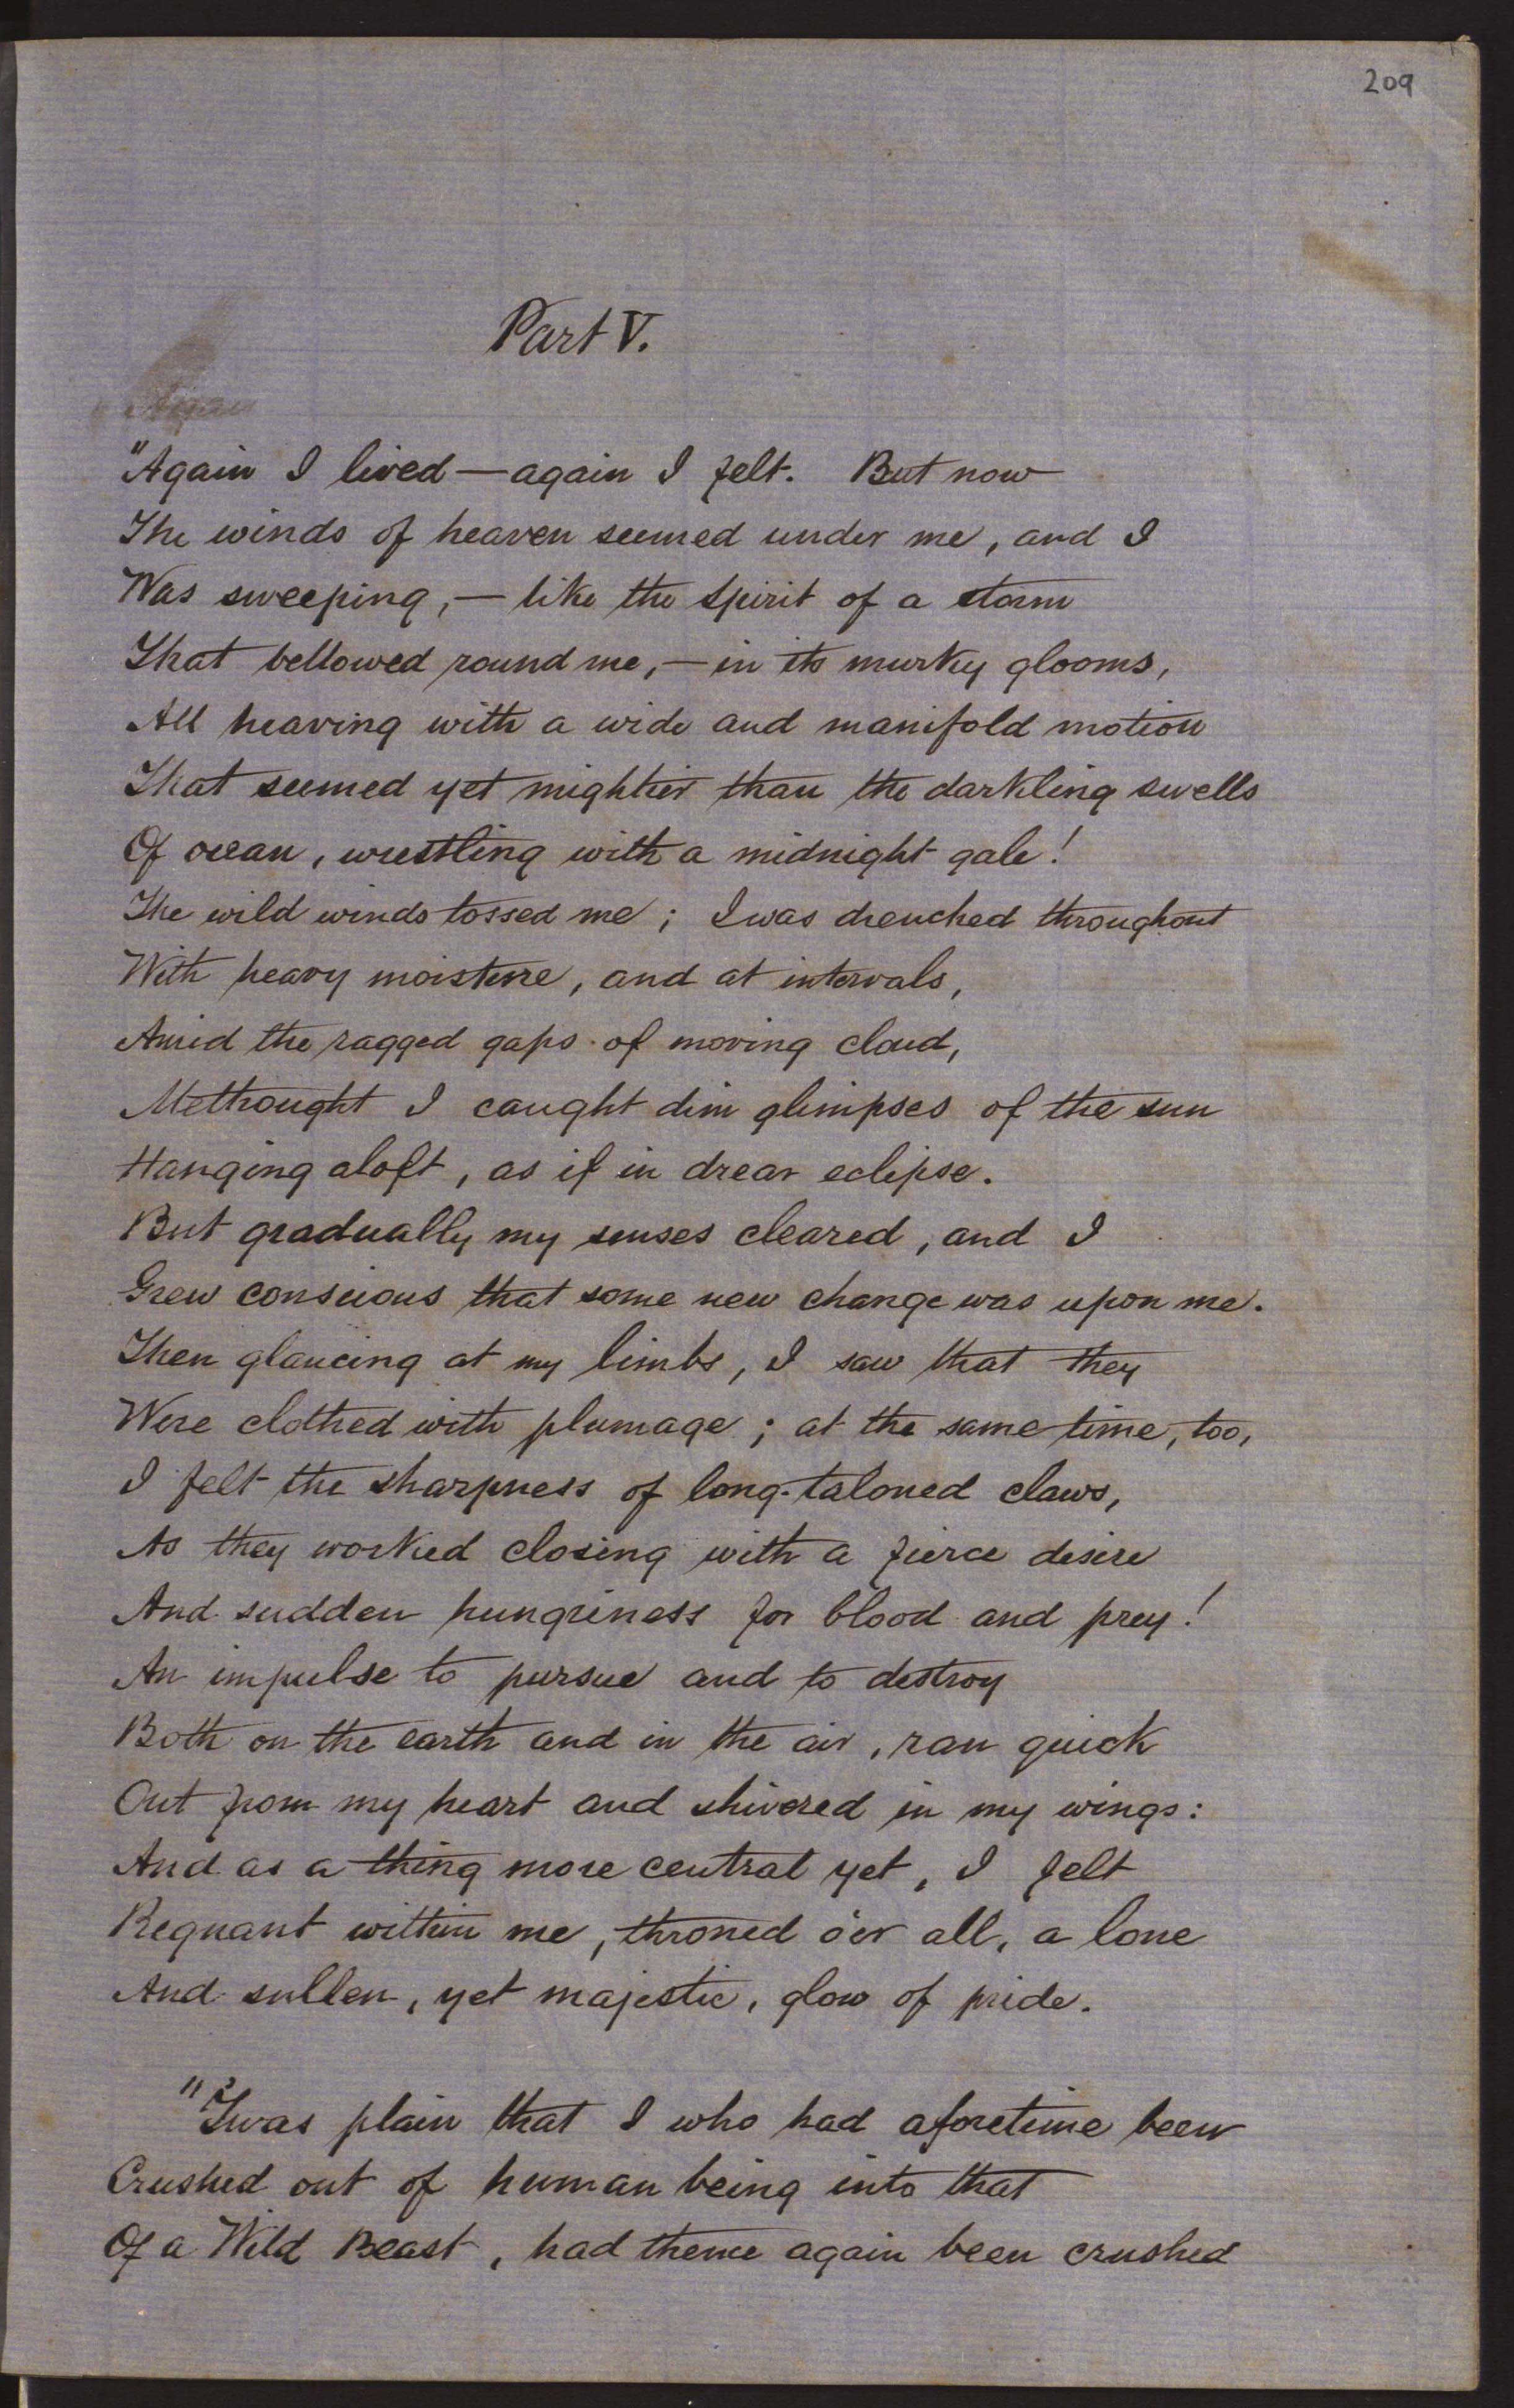 209
Part V.
"Again I lived — again I felt. But now
The winds of heaven seemed under me, and I
Was sweeping, — like the spirit of a storm
That bellowed round me, — in its murky glooms,
All heaving with a wide and manifold motion
That seemed yet mightier than the darkling swells
Of ocean, wrestling with a midnight gale!
The wild winds tossed me; I was drenched throughout
With heavy moisture, and at intervals,
Amid the ragged gaps of moving cloud,
Methought I caught dim glimpses of the sun
Hanging aloft, as if in drear eclipse.
But gradually my senses cleared, and I
Grew conscious that some new change was upon me.
Then glancing at my limbs, I saw that they
Were clothed with plumage; at the same time, too,
I felt the sharpness of long-taloned claws,
As they worked closing with a fierce desire
And sudden hungriness for blood and prey!
An impulse to pursue and to destroy
Both on the earth and in the air, ran quick
Out from my heart and shivered in my wings:
And as a thing more central yet, I felt
Regnant within me, throned o'er all, a lone
And sullen, yet majestic, glow of pride.
"'Twas plain that I who had aforetime been
Crushed out of human being into that
Of a Wild Beast, had thence again been crushed